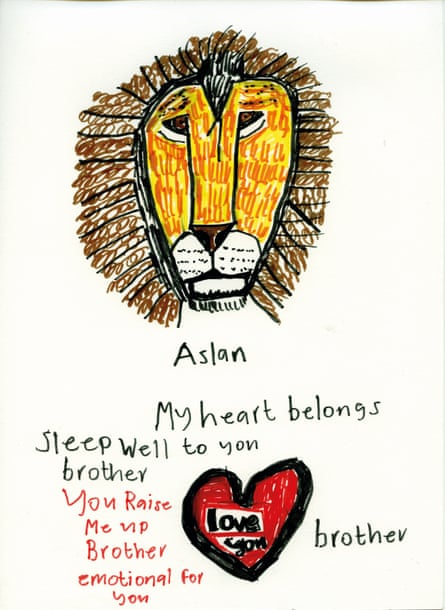 Aslan
My heart belongs
Sleep Well to you
brother
You Raise
Me up
Brother
emotional for
you
Love
you
brother